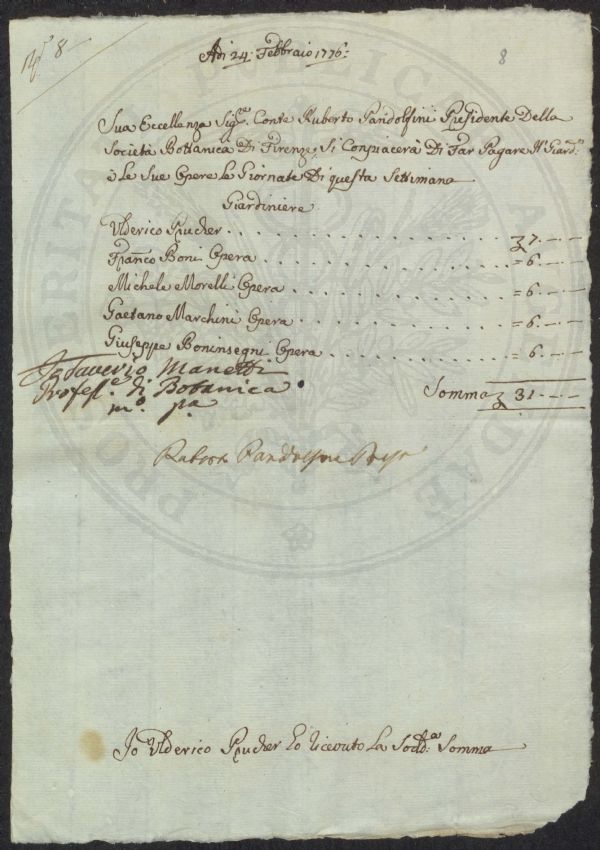 N.º 8
8
Adi 24: Febbraio 1776:
Sua Eccellenza Sig.re Conte Ruberto Pandolfini Presidente Della
Società Bottanica Di Firenze, Si Conpiacerà Di Far Pagare Il Giard.re
è Le Sue Opere Le Giornate Di questa Settimana
Giardiniere
Ulderico Prucher . . . 7.—.—
Fran.co Boni Opera . . . = 6.—.—
Michele Morelli Opera . . . = 6.—.—
Gaetano Marchini Opera . . . = 6.—.—
Giuseppe Boninsegni Opera . . . = 6.—.—
Io Saverio Manetti
Profess.e di Botanica
m.o p.a
Somma 31.—.—
Ruberto Pandolfini Pres.e
Jo Ulderico Prucher ho ricevuto La Sodd.a Somma
PROSPERITATI PUBLICAE AUGENDAE